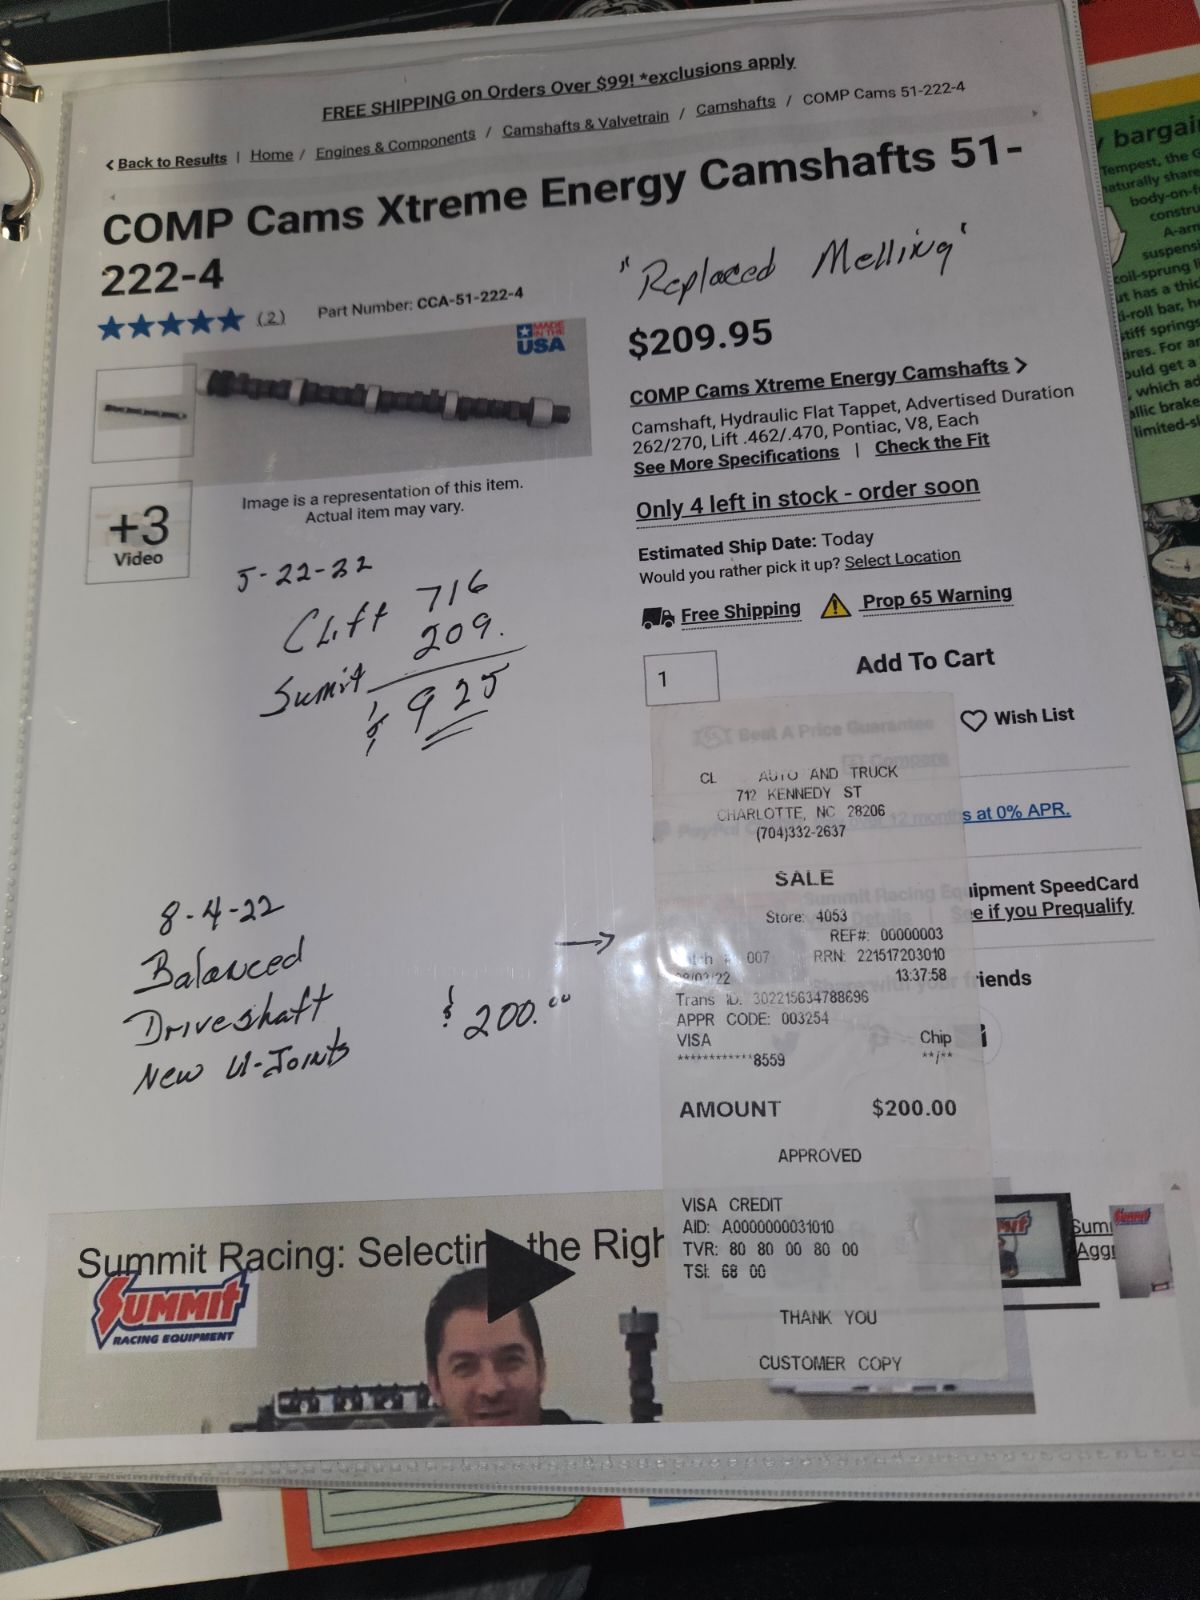 FREE SHIPPING on Orders Over $99! *exclusions apply
< Back to Results | Home / Engines & Components / Camshafts & Valvetrain / Camshafts / COMP Cams 51-222-4
COMP Cams Xtreme Energy Camshafts 51-
222-4
(2) Part Number: CCA-51-222-4
"Replaced Melling"
MADE IN THE
USA
$209.95
COMP Cams Xtreme Energy Camshafts >
Camshaft, Hydraulic Flat Tappet, Advertised Duration
262/270, Lift .462/.470, Pontiac, V8, Each
See More Specifications | Check the Fit
Image is a representation of this item.
Actual item may vary.
+3
Video
Only 4 left in stock - order soon
Estimated Ship Date: Today
Would you rather pick it up? Select Location
Free Shipping Prop 65 Warning
5-22-22
Clift 716
Sumit 209.
$ 925
1 Add To Cart
Beat A Price Guarantee
Wish List
Compare
CL AUTO AND TRUCK
712 KENNEDY ST
CHARLOTTE, NC 28206
(704)332-2637
12 months at 0% APR.
SALE
Summit Racing Equipment SpeedCard
Details | See if you Prequalify
Store: 4053
REF#: 00000003
007 RRN: 221517203010
13:37:58
Share with your friends
Trans ID: 302215634788696
APPR CODE: 003254
VISA Chip
************8559 **/**
AMOUNT $200.00
APPROVED
VISA CREDIT
AID: A0000000031010
TVR: 80 80 00 80 00
TSI: 68 00
THANK YOU
CUSTOMER COPY
8-4-22
Balanced
Driveshaft
New U-Joints
$ 200.00
Summit Racing: Selecting the Righ
SUMMIT
RACING EQUIPMENT
Sumi
Aggr
Summit
bargai
Tempest, the G
naturally share
body-on-f
constru
A-arm
suspensi
coil-sprung
ut has a thic
i-roll bar, h
stiff springs
tires. For a
ould get a
which ad
allic brake
limited-sl